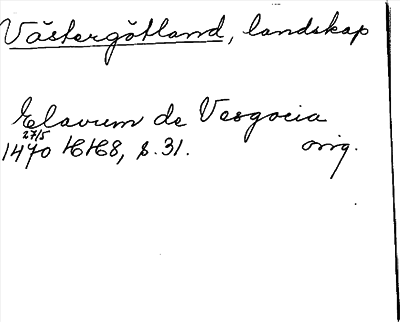 Västergötland, landskap
Elavum de Vesgocia
27/5
1470 HH8, s. 31. orig.